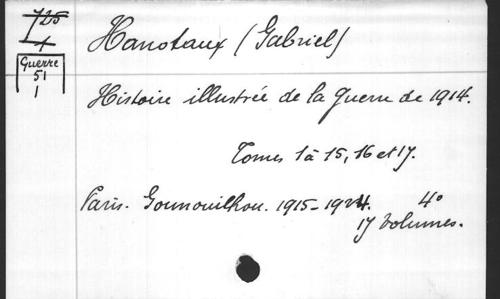 I 725
4
Guerre
51
1
Hanotaux (Gabriel)
Histoire illustrée de la Guerre de 1914.
Tomes 1 à 15, 16 et 17.
Paris. Gounouilhou. 1915-1924. 4°
17 volumes.